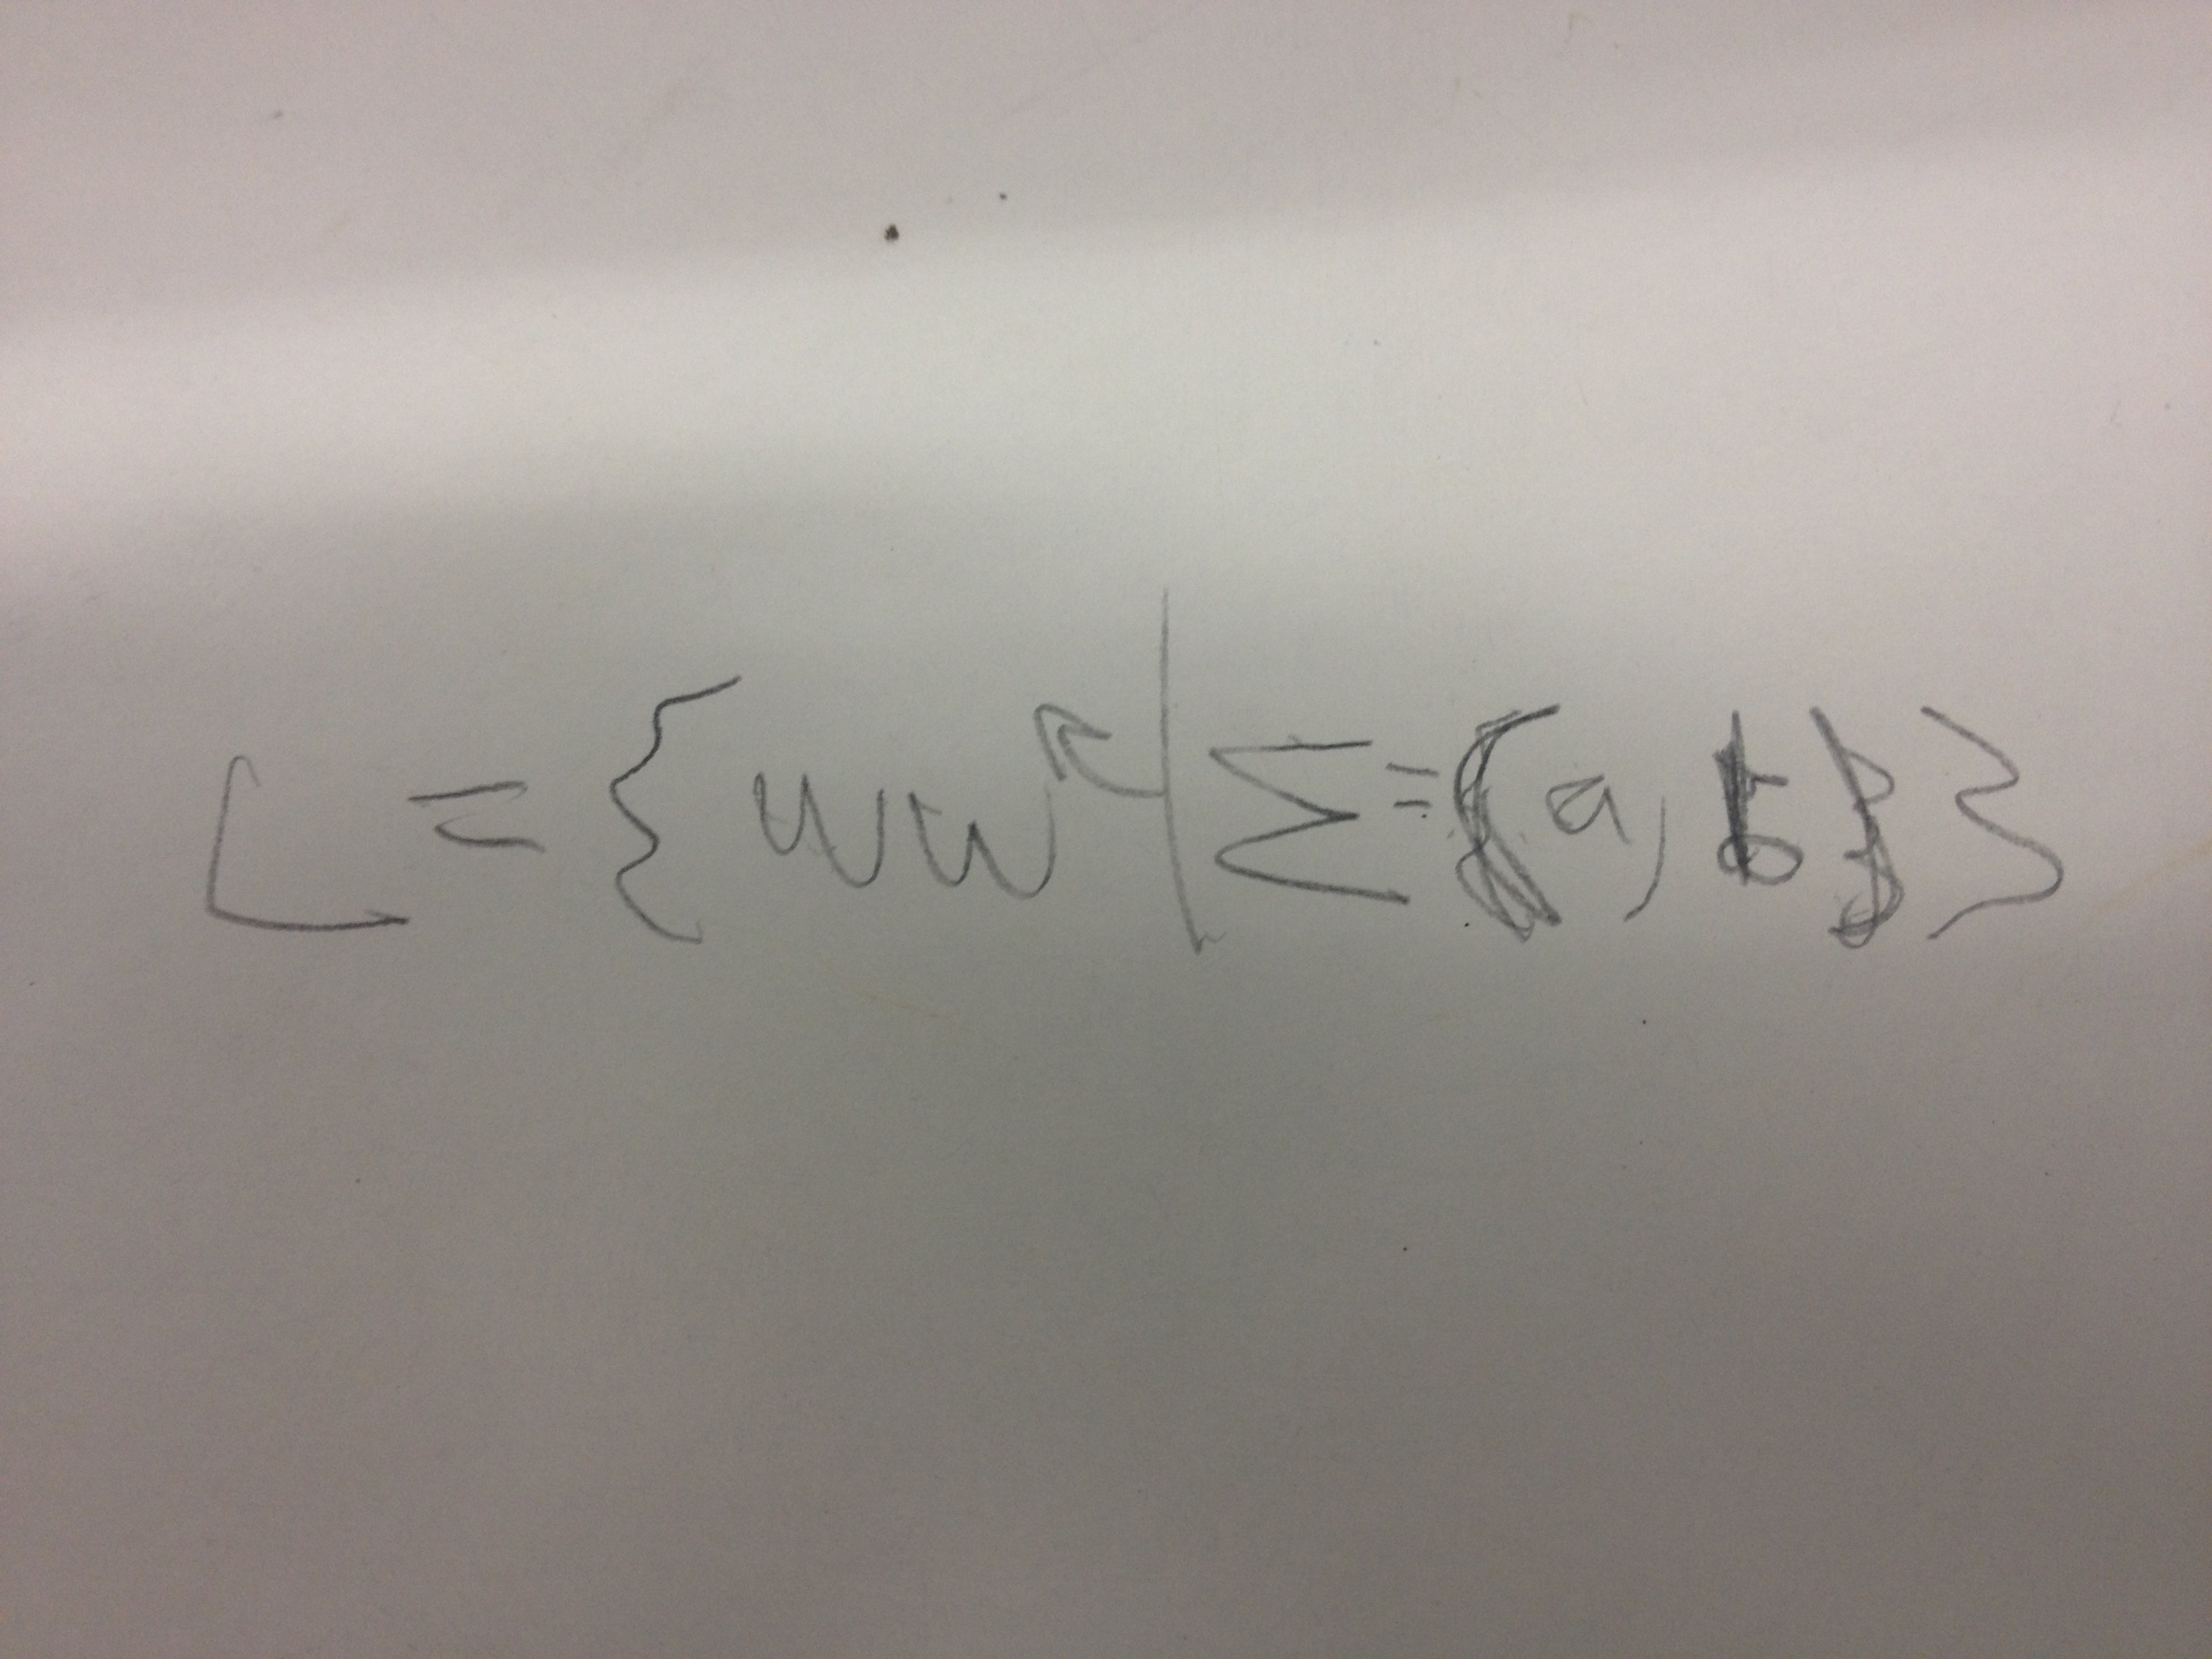 L = {ww^R | Σ = {a, b}}